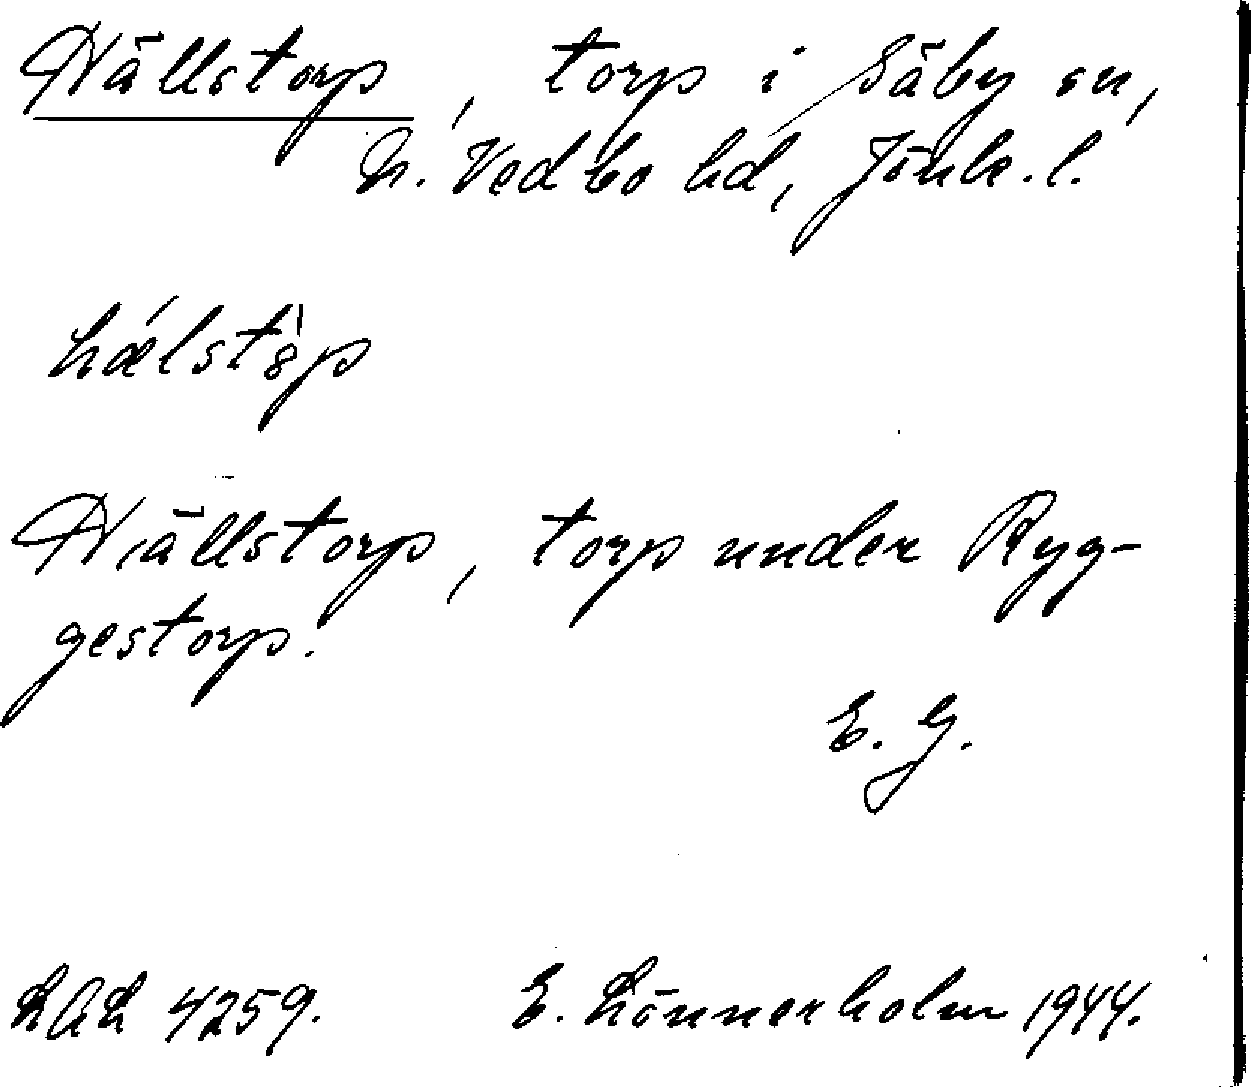 Hällstorp, torp i Säby sn,
N. Vedbo hd, Jönk. l.
hǽlstàp
Hällstorp, torp under Ryg-
gestorp.
E. G.
LAL 4259. E. Lönnerholm 1944.